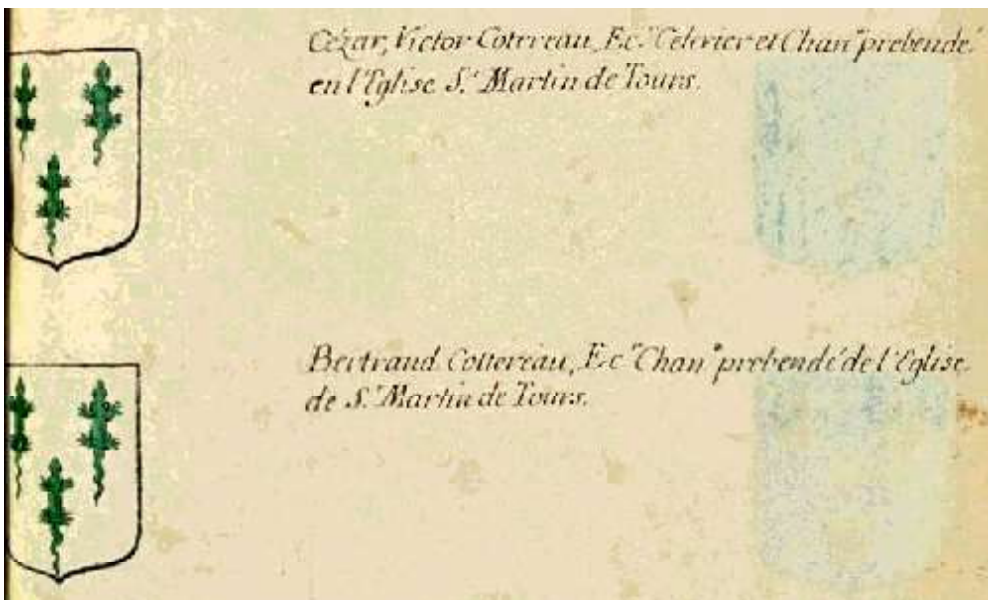 Cézar, Victor Cottereau, Ec.ʳ Célérier et Chan.ⁿᵉ prebendé
en l'Eglise S.ᵗ Martin de Tours.
Bertrand Cottereau, Ec.ʳ Chan.ⁿᵉ prebendé de l'Eglise
de S.ᵗ Martin de Tours.